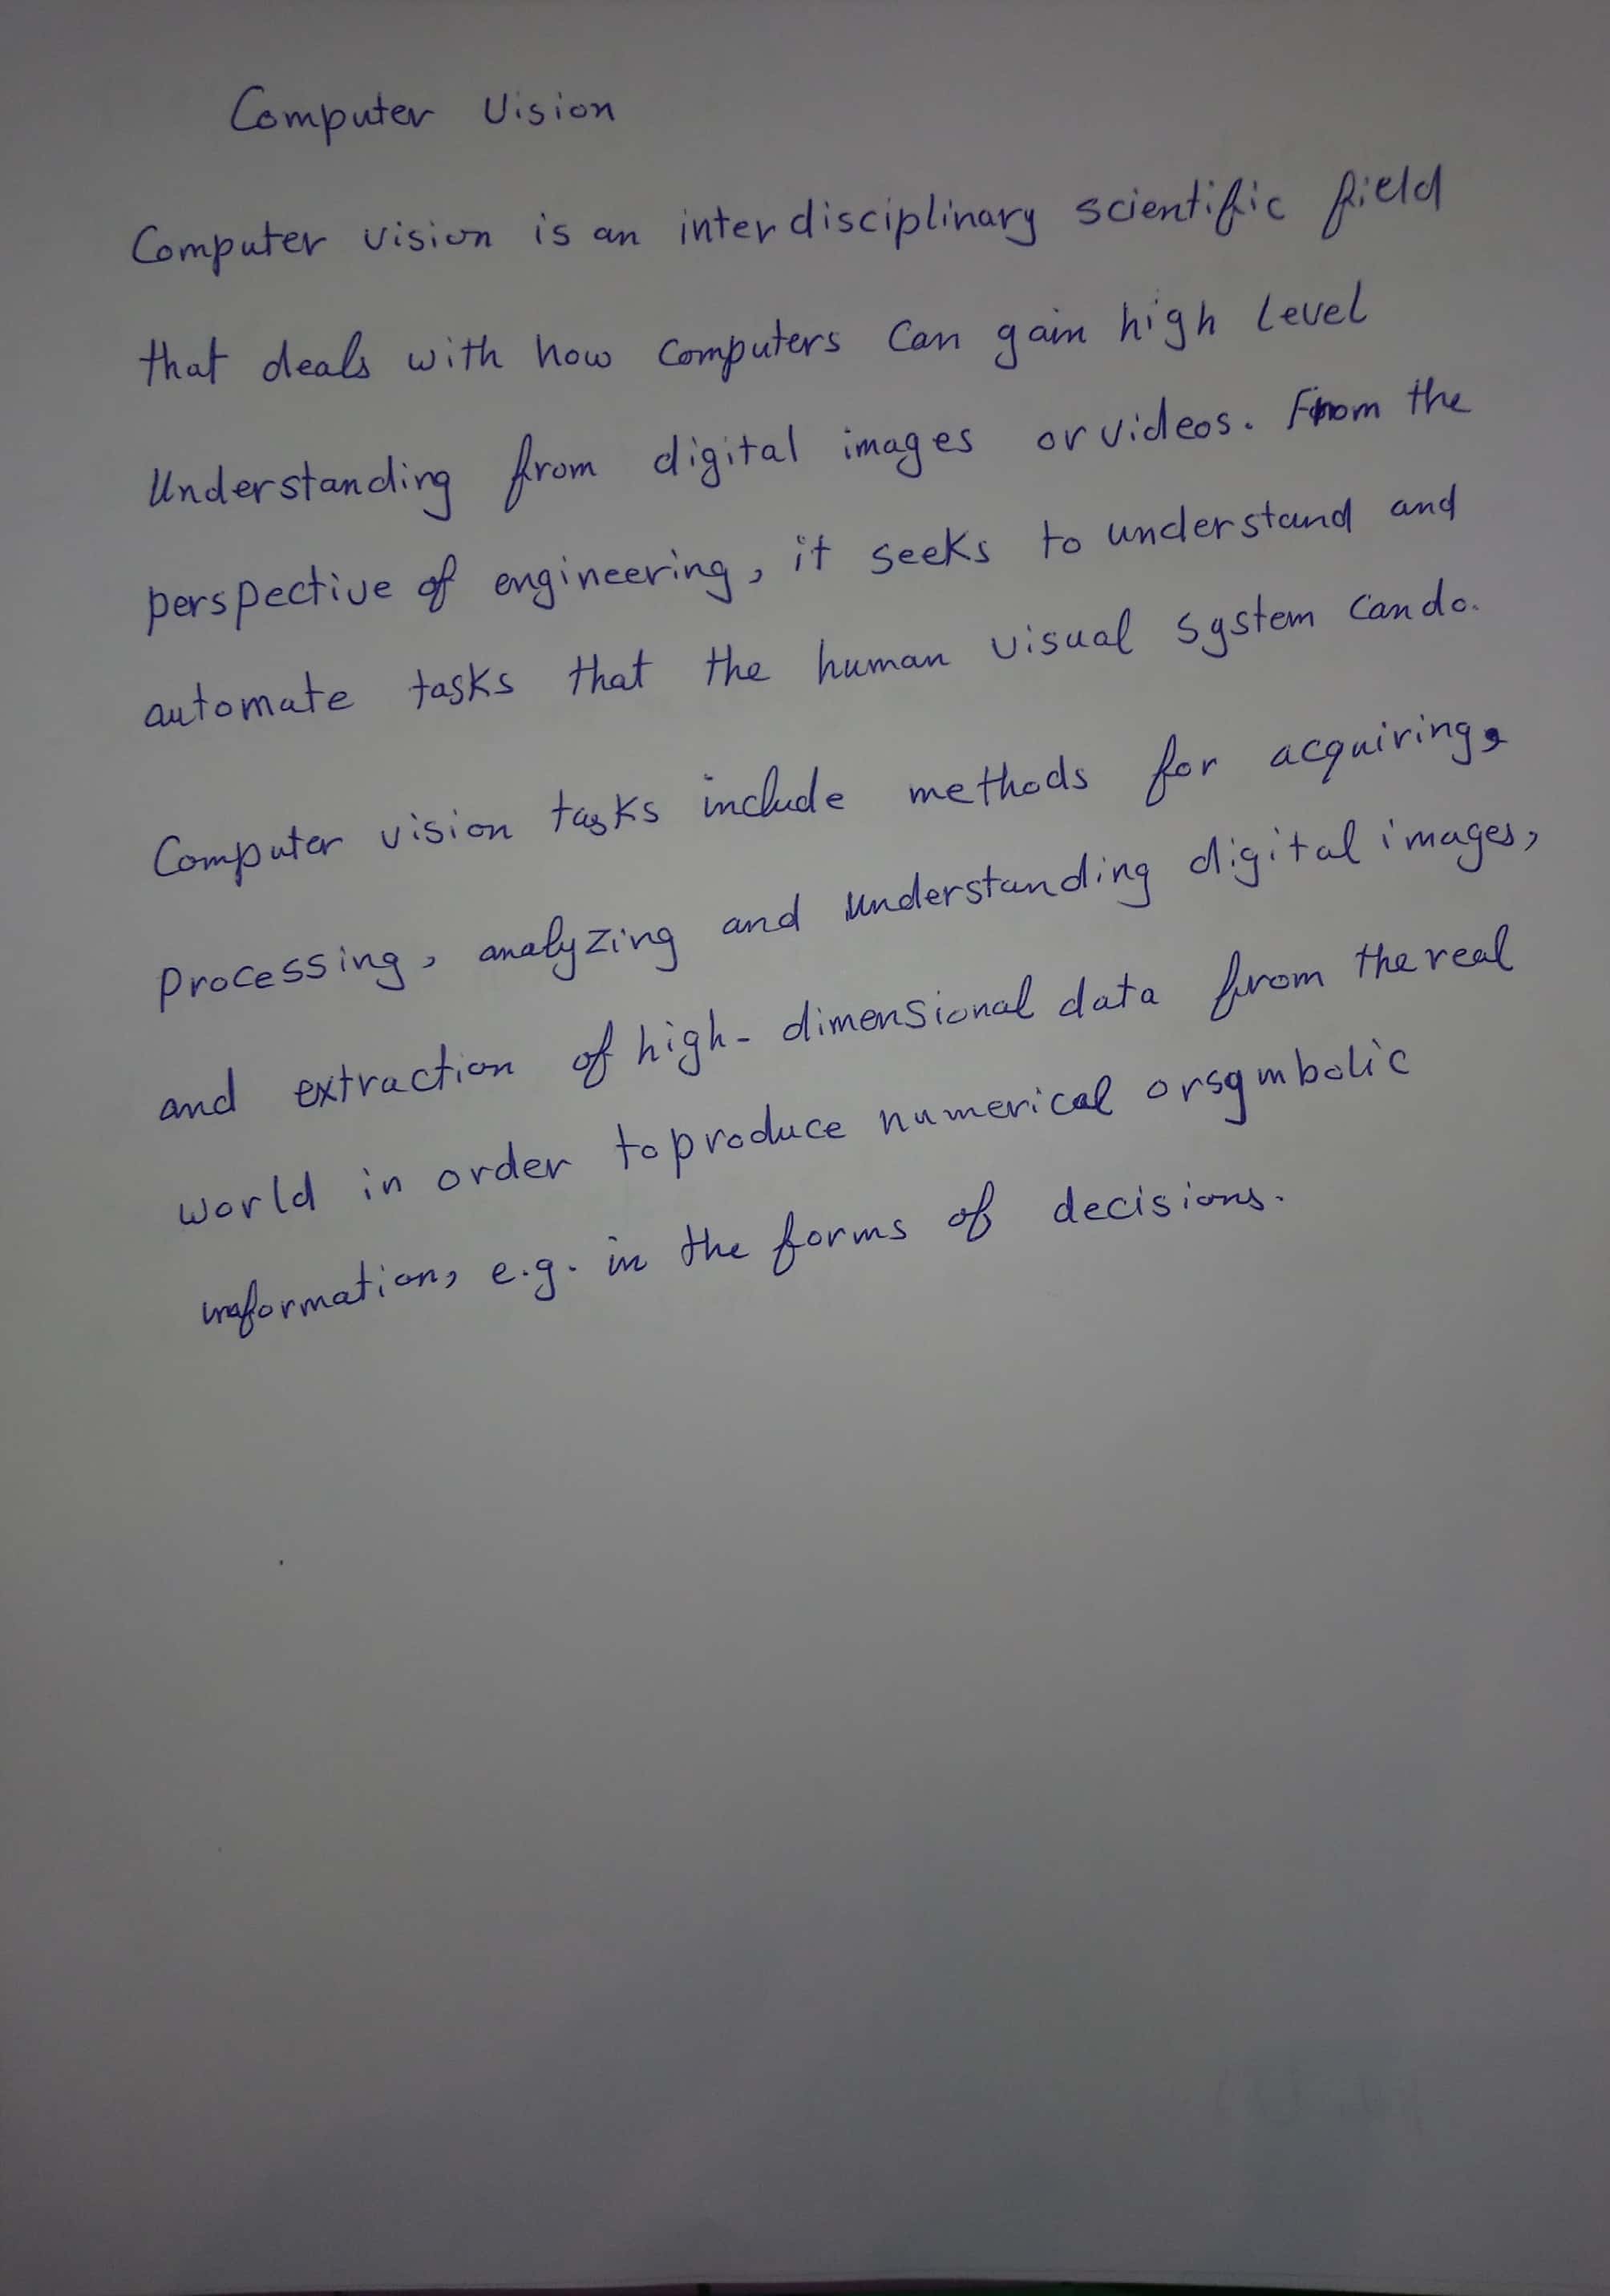 Computer Vision
Computer vision is an interdisciplinary scientific field
that deals with how computers can gain high level
Understanding from digital images or videos. From the
perspective of engineering, it seeks to understand and
automate tasks that the human visual system can do.
Computer vision tasks include methods for acquiring,
processing, analyzing and understanding digital images,
and extraction of high-dimensional data from the real
world in order to produce numerical or symbolic
information, e.g. in the forms of decisions.